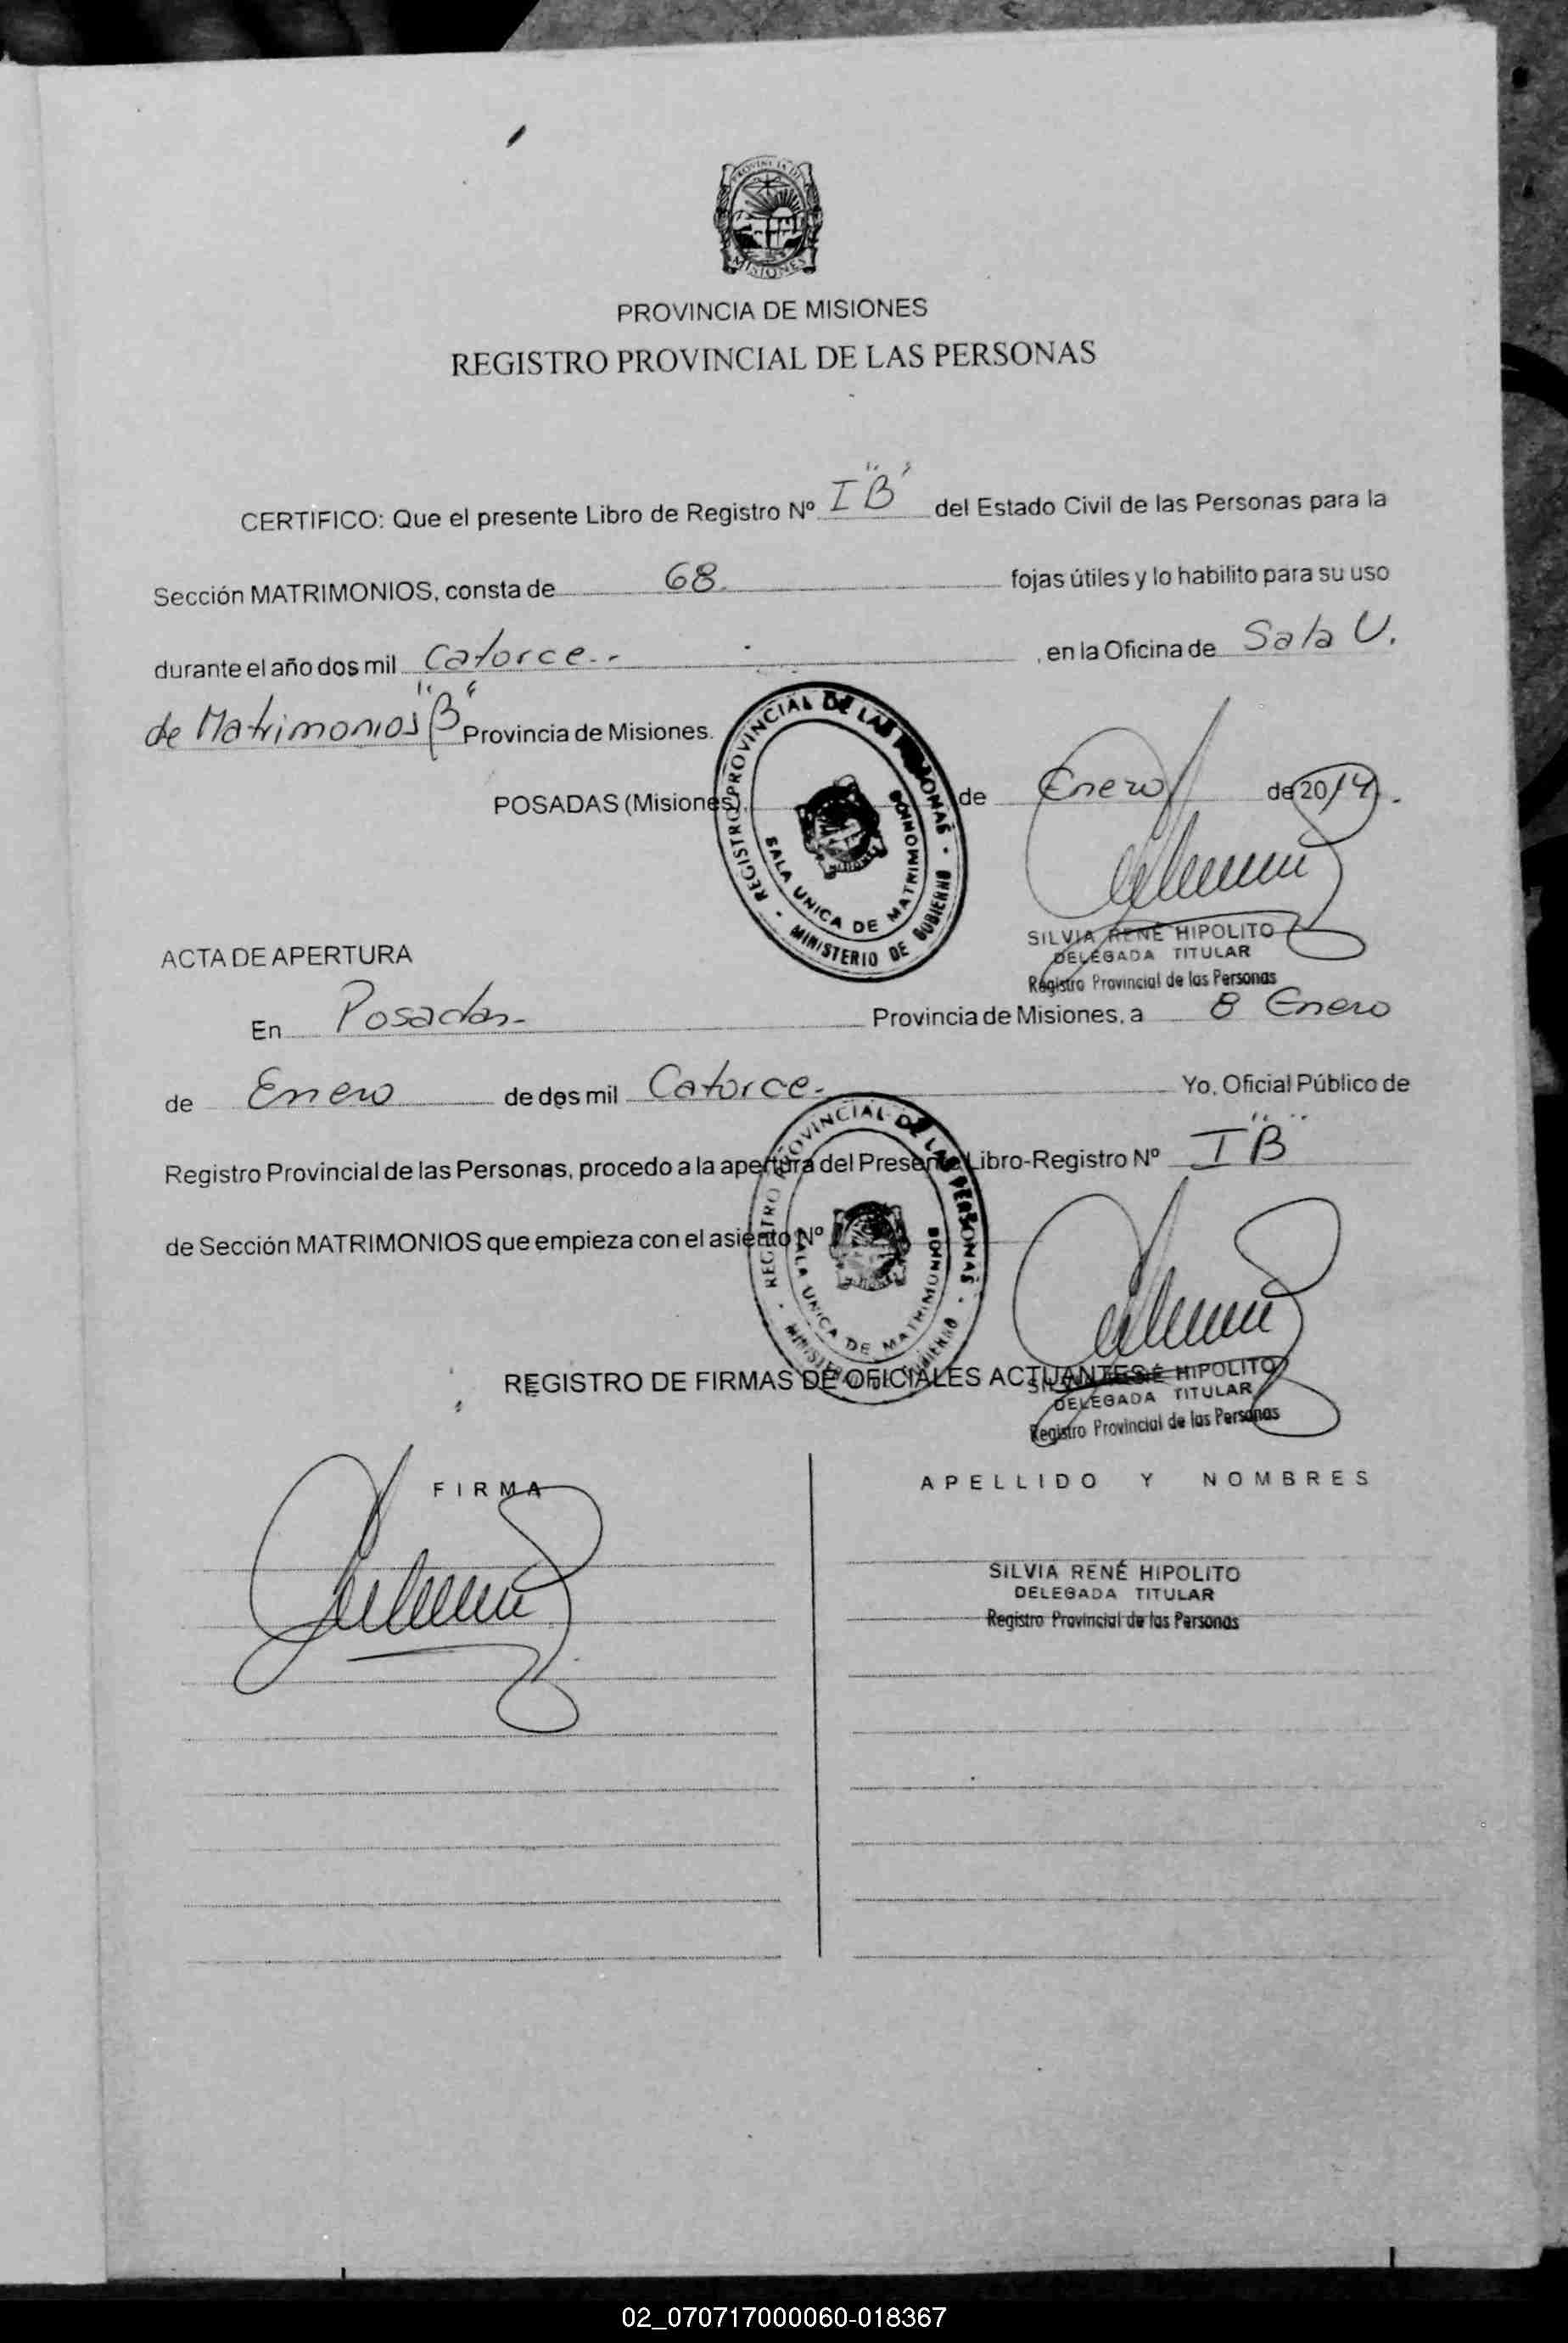 PROVINCIA DE
MISIONES
PROVINCIA DE MISIONES
REGISTRO PROVINCIAL DE LAS PERSONAS
CERTIFICO: Que el presente Libro de Registro Nº I "B" del Estado Civil de las Personas para la
Sección MATRIMONIOS, consta de 68 fojas útiles y lo habilito para su uso
durante el año dos mil Catorce.- , en la Oficina de Sala U.
de Matrimonios "B" Provincia de Misiones.
POSADAS (Misiones), de Enero de 2014.
REGISTRO PROVINCIAL DE LAS PERSONAS - MINISTERIO DE GOBIERNO -
SALA UNICA DE MATRIMONIOS
SILVIA RENÉ HIPOLITO
DELEGADA TITULAR
Registro Provincial de las Personas
ACTA DE APERTURA
En Posadas.- Provincia de Misiones, a 8 Enero
de Enero de dos mil Catorce.- Yo, Oficial Público de
Registro Provincial de las Personas, procedo a la apertura del Presente Libro-Registro Nº I "B"
de Sección MATRIMONIOS que empieza con el asiento Nº
REGISTRO PROVINCIAL DE LAS PERSONAS - MINISTERIO DE GOBIERNO -
SALA UNICA DE MATRIMONIOS
REGISTRO DE FIRMAS DE OFICIALES ACTUANTES
HIPOLITO
DELEGADA TITULAR
Registro Provincial de las Personas
FIRMA APELLIDO Y NOMBRES
SILVIA RENÉ HIPOLITO
DELEGADA TITULAR
Registro Provincial de las Personas
02_070717000060-018367